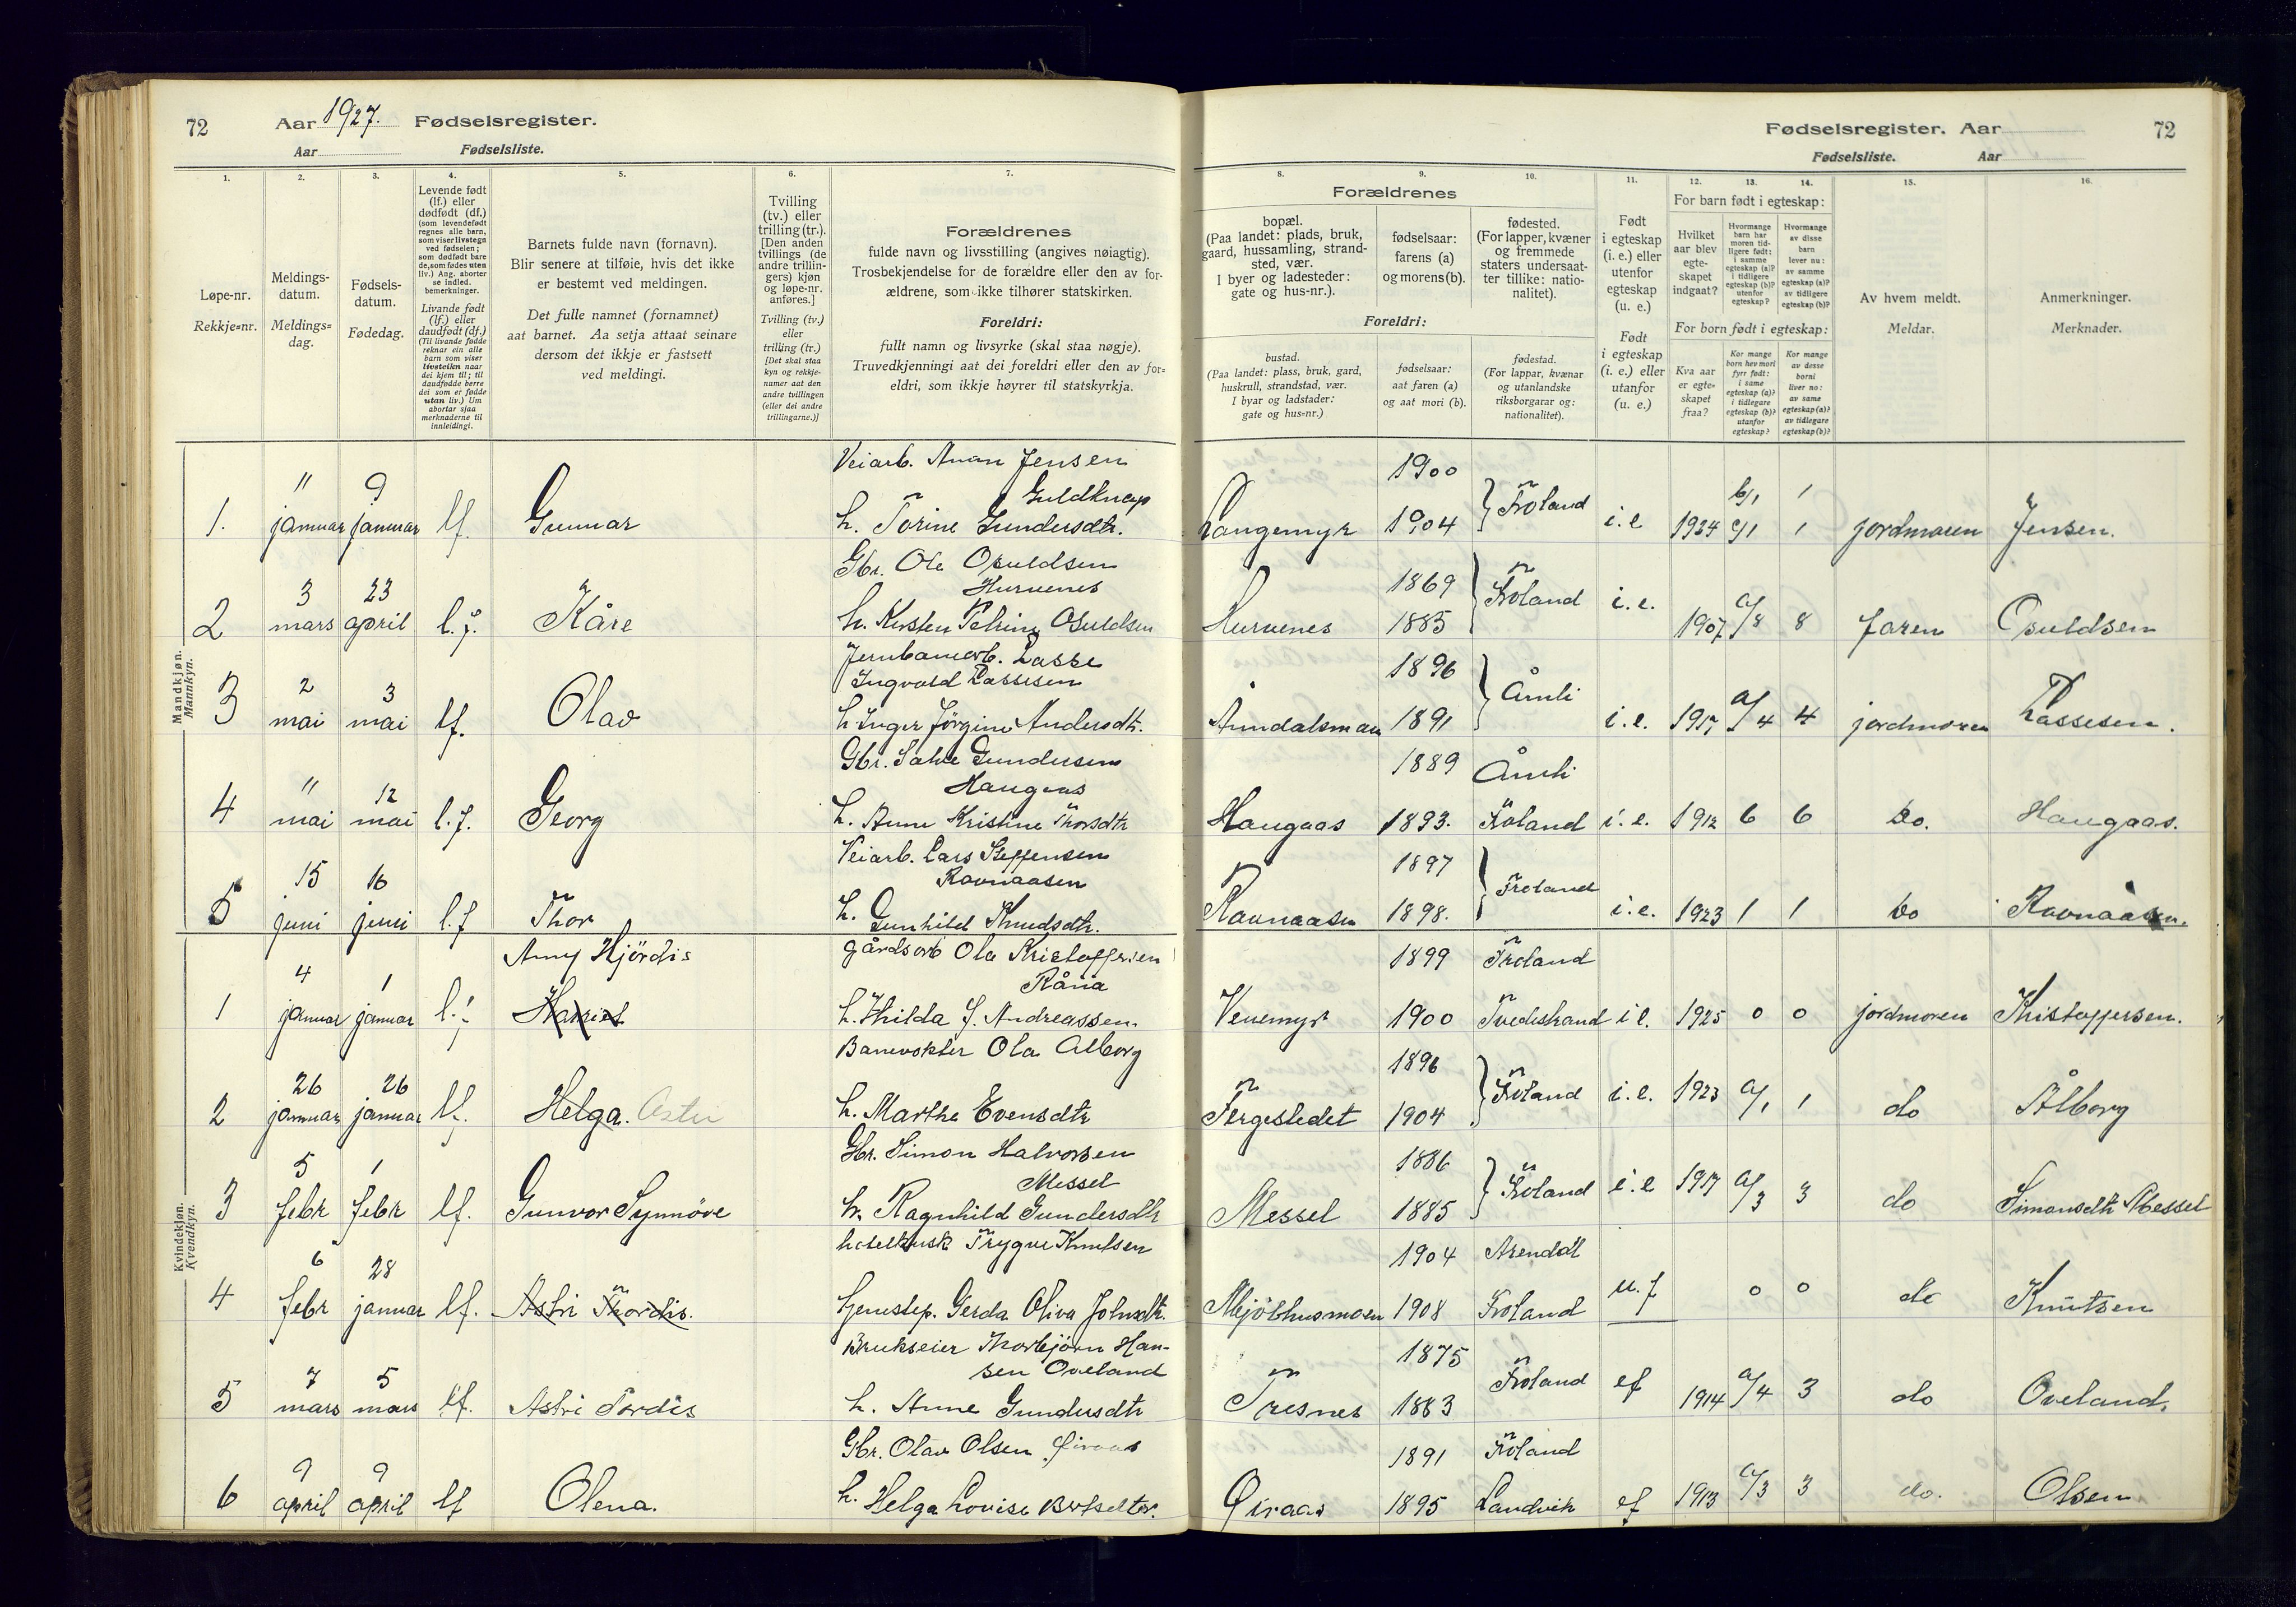 72 Aar 1927. Fødselsregister.
Aar Fødselsliste.
Fødselsregister. Aar 72
Fødselsliste. Aar
1. 2. 3. 4. 5. 6. 7.
Løpe-nr.
Rekkje=nr.
Meldings-
datum.
Meldings=
dag.
Fødsels-
datum.
Fødedag.
Levende født
(lf.) eller
dødfødt (df.)
(som levendefødt
regnes alle barn,
som viser livstegn
ved fødselen;
som dødfødt bare
de, som fødes uten
liv.) Ang. aborter
se indled.
bemerkninger.
Livande født
(lf.) eller
daudfødt (df.)
(Til livande fødde
reknar ein alle
barn som viser
livsteikn naar
dei kjem til; til
daudfødde berre
dei som er fødde
utan liv.) Um
abortar sjaa
merknaderne til
innleidingi.
Barnets fulde navn (fornavn).
Blir senere at tilføie, hvis det ikke
er bestemt ved meldingen.
Det fulle namnet (fornamnet)
aat barnet. Aa setja attaat seinare
dersom det ikkje er fastsett
ved meldingi.
Tvilling
(tv.) eller
trilling (tr.).
[Den anden
tvillings (de
andre trillin-
gers) kjøn
og løpe-nr.
anføres.]
Tvilling (tv.)
eller
trilling (tr.)
[Det skal staa
kyn og rekkje-
numer aat den
andre tvillingen
(eller dei andre
trillingarne.)]
Forældrenes
fulde navn og livsstilling (angives nøiagtig).
Trosbekjendelse for de forældre eller den av for-
ældrene, som ikke tilhører statskirken.
Foreldri:
fullt namn og livsyrke (skal staa nøgje).
Truvedkjenningi aat dei foreldri eller den av for=
eldri, som ikkje høyrer til statskyrkja.
8. 9. 10. 11. 12. 13. 14. 15. 16.
Forældrenes
bopæl.
(Paa landet: plads, bruk,
gaard, hussamling, strand-
sted, vær.
I byer og ladesteder:
gate og hus-nr.).
fødselsaar:
farens (a)
og morens (b).
fødested.
(For lapper, kvæner
og fremmede
staters undersaat-
ter tillike: natio-
nalitet).
Foreldri:
bustad.
(Paa landet: plass, bruk, gard,
huskrull, strandstad, vær.
I byar og ladstader:
gate og hus=nr.)
fødselsaar:
aat faren (a)
og aat mori (b).
fødestad.
(For lappar, kvænar
og utanlandske
riksborgarar og:
nationalitet).
Født
i egteskap
(i. e.) eller
utenfor
egteskap
(u. e.)
Født
i egteskap
(i. e.) eller
utanfor
(u. e.)
For barn født i egteskap:
Hvilket
aar blev
egte-
skapet
indgaat?
Hvormange
barn har
moren tid-
ligere født:
i samme
egteskap (a)?
i tidligere
egteskap (b)?
utenfor
egteskap?
Hvormange
av disse
barn
lever nu:
av samme
egteskap (a)?
av tidligere
egteskap (b)?
For born født i egteskap:
Kva aar
er egte=
skapet
fraa?
Kor mange
born hev mori
fyrr født:
i same
egteskap (a)?
i tidlegare
egteskap (b)?
utanfor
egteskap?
Kor mange
av desse
borni
liver no:
av same
egteskap (a)?
av tidlegare
egteskap (b)?
Av hvem meldt.
Meldar.
Anmerkninger.
Merknader.
Mandkjøn.
Mannkyn.
Veiarb. Jensen 1900
Guldknap
1. 11 januar 9 januar lf. Gunnar h. Torine Gundersdtr. Langemyr 1904 Froland i.e 1924 1 jordmoren Jensen.
Gbr. Ole Osuldsen 1869
Hurvenes
2 3 mars 23 april l.f. Kåre h. Kirsten Osuldsen Hurvenes 1885 Froland i.e. 1907 a/8 8 faren Osuldsen
Jernbanearb. Lasse 1896
Ingvald Lassesen
3 2 mai 3 mai lf. Olav h. Inger Jørgine Andersdtr. 1891 Åmli i.e. 1917 a/4 4 jordmoren Lassesen.
Gbr. Salve Gundersen 1889 Åmli
Haugaas
4 11 mai 12 mai l.f. Georg h. Anne Kristine Thorsdtr Haugaas 1893. Froland i.e. 1912 6 6 Do. Haugaas.
Veiarb. Lars Steffensen 1897
Ravnaasen
5 15 juni 16 juni l.f Thor h. Gunhild Knudsdtr. Ravnaasen 1898. Froland i.e. 1923 1 1 Do Ravnaasen.
Kvindekjøn.
Kvendkyn.
Anny Hjördis gårdsarb Ola Kristoffersen 1899 Froland
Råna
1 4 januar 1 januar l.f. Harriet h. Hilda J. Andreassen. Venemyr 1900 Tvedestrand i e. 1925 0 0 jordmoren Kristoffersen.
Banevokter Ola Alborg 1896
2 26 januar 26 januar lf. Helga. h. Marthe Evensdtr Fergestedet 1904 Froland i.e. 1923 a/1 1 do Ålborg
Gbr. Simon Halvorsen 1886
Messel
3 5 febr 1 febr lf. Gunvor Synnöve h. Ragnhild Gundersdtr Messel 1885 Froland i.e 1917 a/3 3 do Simonsdtr Messel
hotelkusk Trygve Knutsen 1904 Arendal
4 6 febr 28 januar lf. Astri Thordis. Gerda Oliva Johnsdtr. Mjölhusmoen 1908 Froland u.f 0 0 do Knutsen
Brukseier Thorbjörn Han- 1875
sen Oveland
5 7 mars 5 mars lf. Astri Tordis h. Anne Gundersdtr Tresnes 1883 Froland ef 1914 a/4 3 do Oveland.
Gbr. Olav Olsen Öiraas 1891 Froland
6 9 april 9 april lf Olena. h. Helga Lovise Öiraas 1895 Landvik ef 1913 a/3 3 do. Olsen